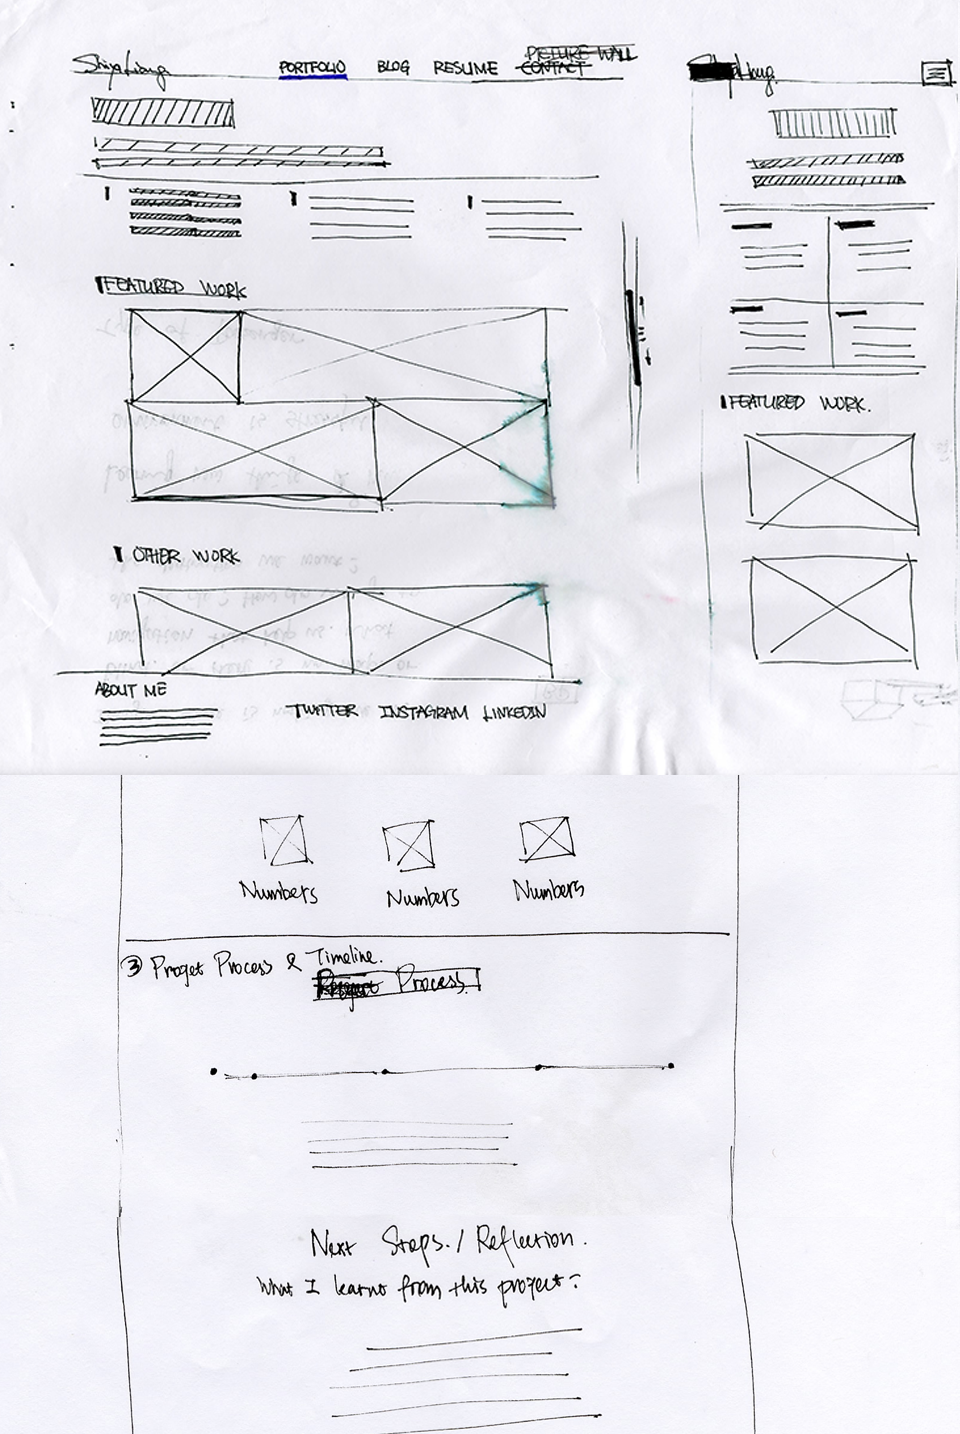 Shiya Liang
PORTFOLIO BLOG RESUME CONTACT
PICTURE WALL
FEATURED WORK
OTHER WORK
ABOUT ME
TWITTER INSTAGRAM LINKEDIN
Liang.
FEATURED WORK.
Numbers Numbers Numbers
③ Proget Process & Timeline.
Process.
Next Steps. / Reflection.
What I learnt from this project?